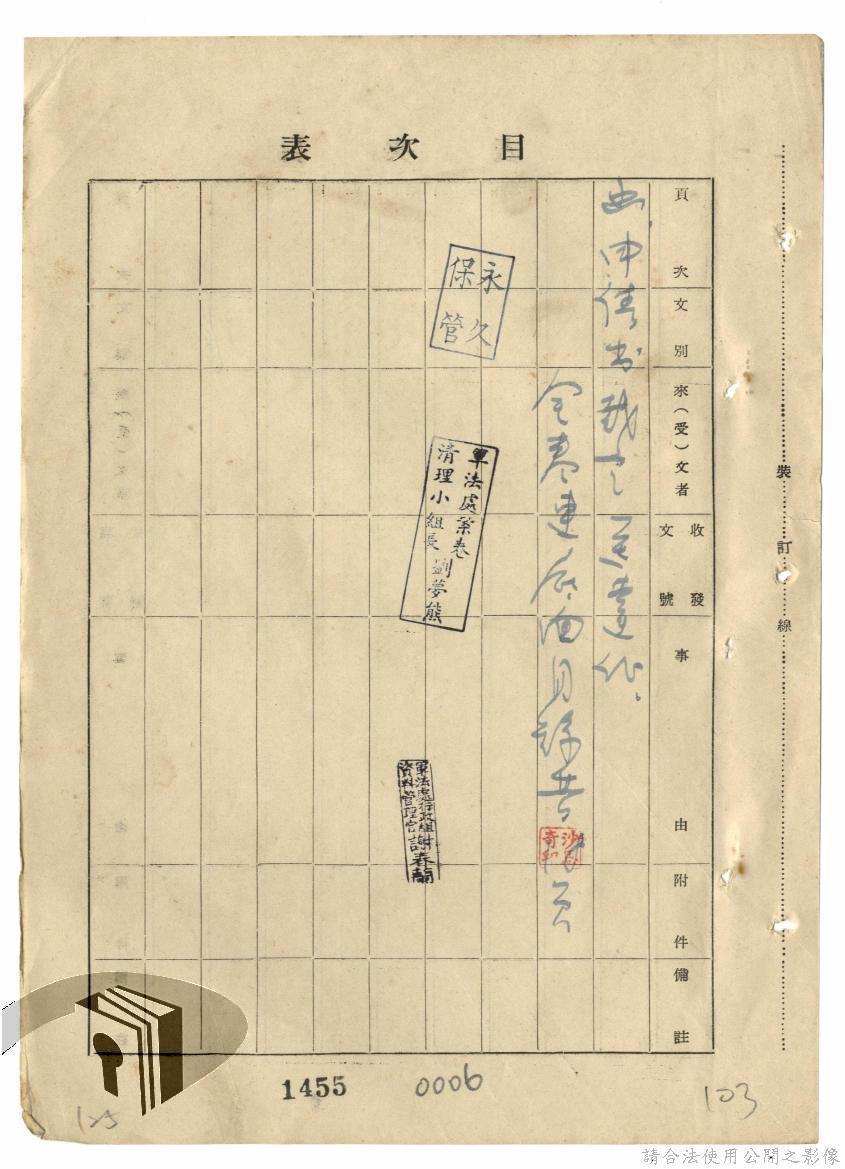 目次表
頁次
文別
來(受)文者
收發文號
事由
附件
備註
裝訂線
申請書
全卷連底面目錄共
頁
永久
保管
軍法處案卷
清理小組長劉夢熊
軍法處行政組
資料管理官謝春蘭
1455
0006
103
125
請合法使用公開之影像